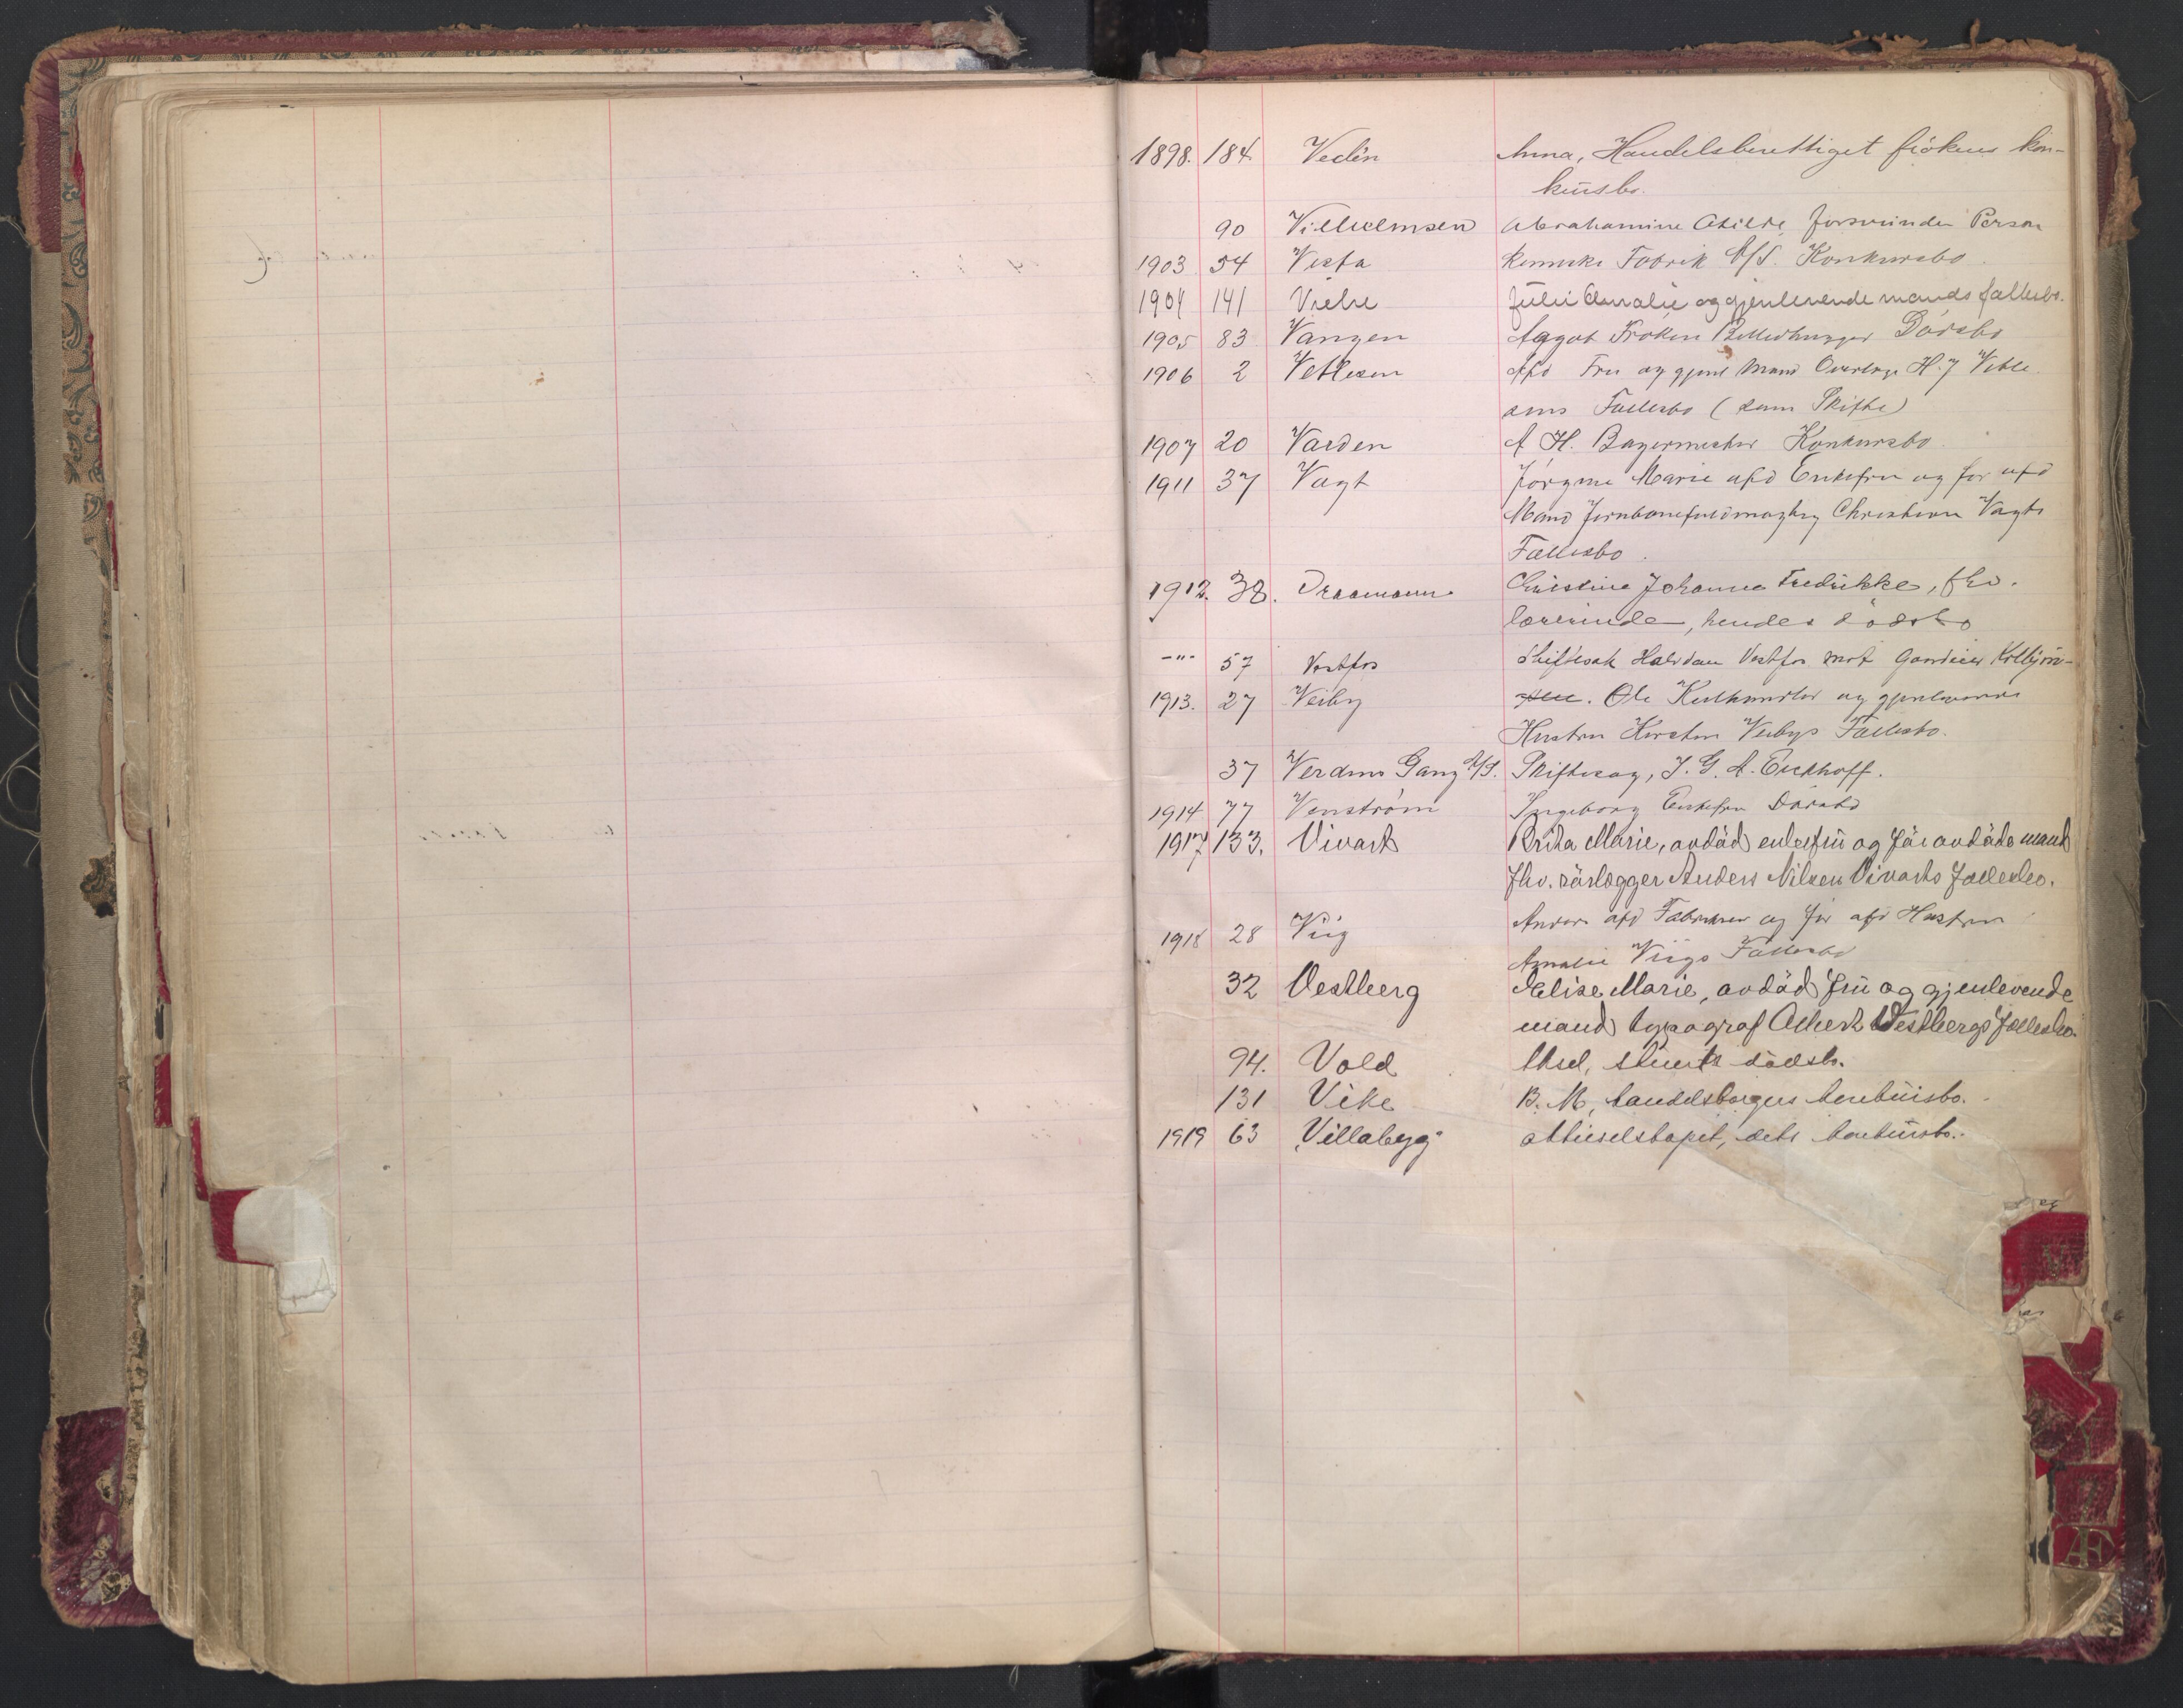 1898. 184. Vedén Anna, Handelsberettiget frökens kon-
kursbo.
90 Vilhelmsen Abrahamine Otilde forsvunden Person
1903 54 Vesta kemiske Fabrik A/S. Konkursbo.
1904 141 Vielse Julie Amalie og gjenlevende mands fællesbo.
1905 83 Vangen Aagot Frøken Dødsbo
1906 2 Vetlesen afd Fru og gjenl Mand Overlæge H. J Vetle
sens Fællesbo (sam Skifte)
1907 20 Varden A H. Bagermester Konkursbo
1911 37 Vagt Jørgine Marie afd Enkefru og før afd
Mand Christian Vagts
Fællesbo.
1912. 38. Vraamann Christine Johanne Fredrikke, fhv.
lærerinde, hendes dödsbo
-"- 57 Vestfos Skiftesak Halvdan Vestfos mot Kolbjörn-
1913. 27 Veiby sen. Ole Kulhandler og gjenlevende
Hustru Kirsten Veibys Fællesbo.
37 Verdens Gang A/S. Skiftesag, J. G. A. Eickhoff.
1914 77 Venström Ingeborg Enkefru Dödsbo
1917 133. Vivart Brita Marie, avdöd enkefru og för avdöde mand
fhv. rörlægger Anders Nilsen Vivarts fællesbo.
1918 28 Viig Anders afd Fabrikeier og før afd Hustru
Amalie Viigs Fællesbo
32 Vestberg Elise Marie, avdöd fru og gjenlevende
mand typograf Albert Vestbergs fællesbo.
94. Vold Aksel, dödsbo.
131 Vike B. M, handelsborgers konkursbo.
1919 63 "Villabygg" aktieselskapet, dets konkursbo.
Æ